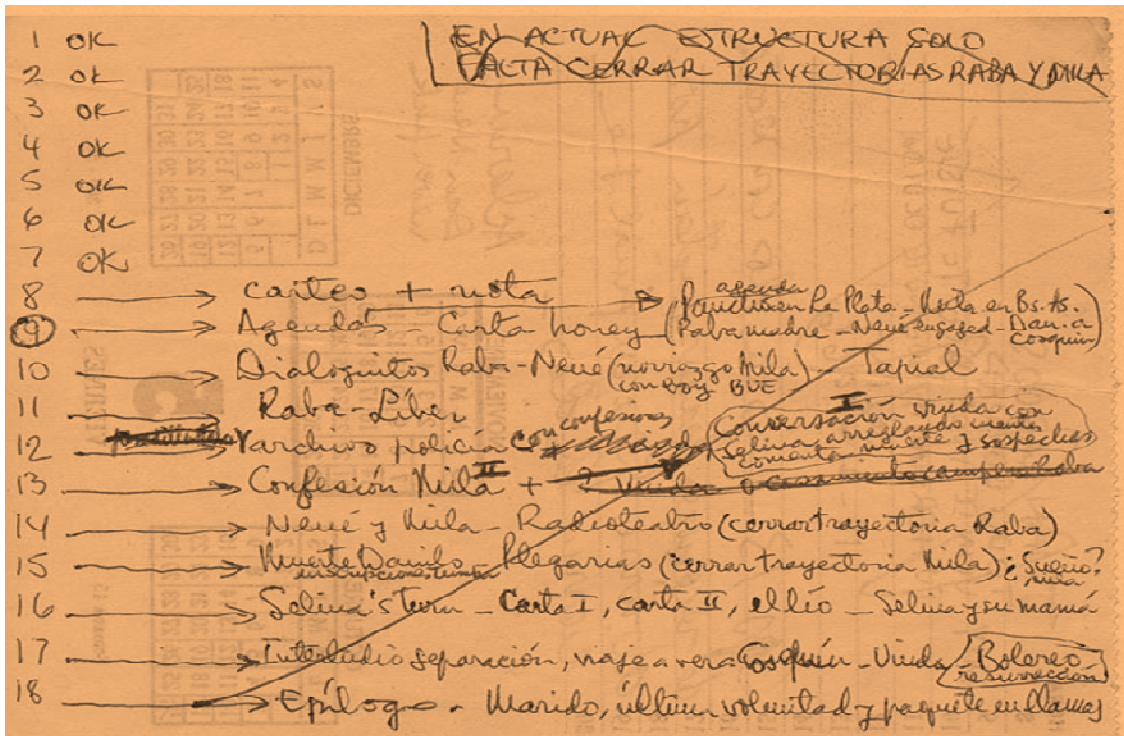 EN ACTUAL ESTRUCTURA SOLO
FALTA CERRAR TRAYECTORIAS RABA Y MILA
1 OK
2 OK
3 OK
4 OK
5 OK
6 OK
7 OK
8 → carteo + nota → agenda
en La Plata - Mila en Bs. As.
9 → Agendas - Carta honey (Raba madre - Nené engaged - Dan. a Cosquín)
10 → Dialoguitos Raba-Nené (noviazgo Mila) - Tapial
con boy BUE
11 → Raba-Líber
12 → Y archivo policía con confesiones
I
Conversación viuda con
Selina, arreglando cuentas
comenta muerte y sospechas
13 → Confesión Mila II + ? Viuda o casamiento campero Raba
14 → Nené y Mila - Radioteatro (cerrar trayectoria Raba)
15 → Muerte Danilo - Plegarias (cerrar trayectoria Mila) ¿Sueño?
inscripciones tumba
16 → Selina's turn - Carta I, carta II, el lío - Selina y su mamá
17 → Interludio separación, viaje a ver a Cosquín - Viuda / Bolereo
resurrección
18 → Epílogo - Marido, última voluntad y paquete en llamas
DICIEMBRE
D L M M J S